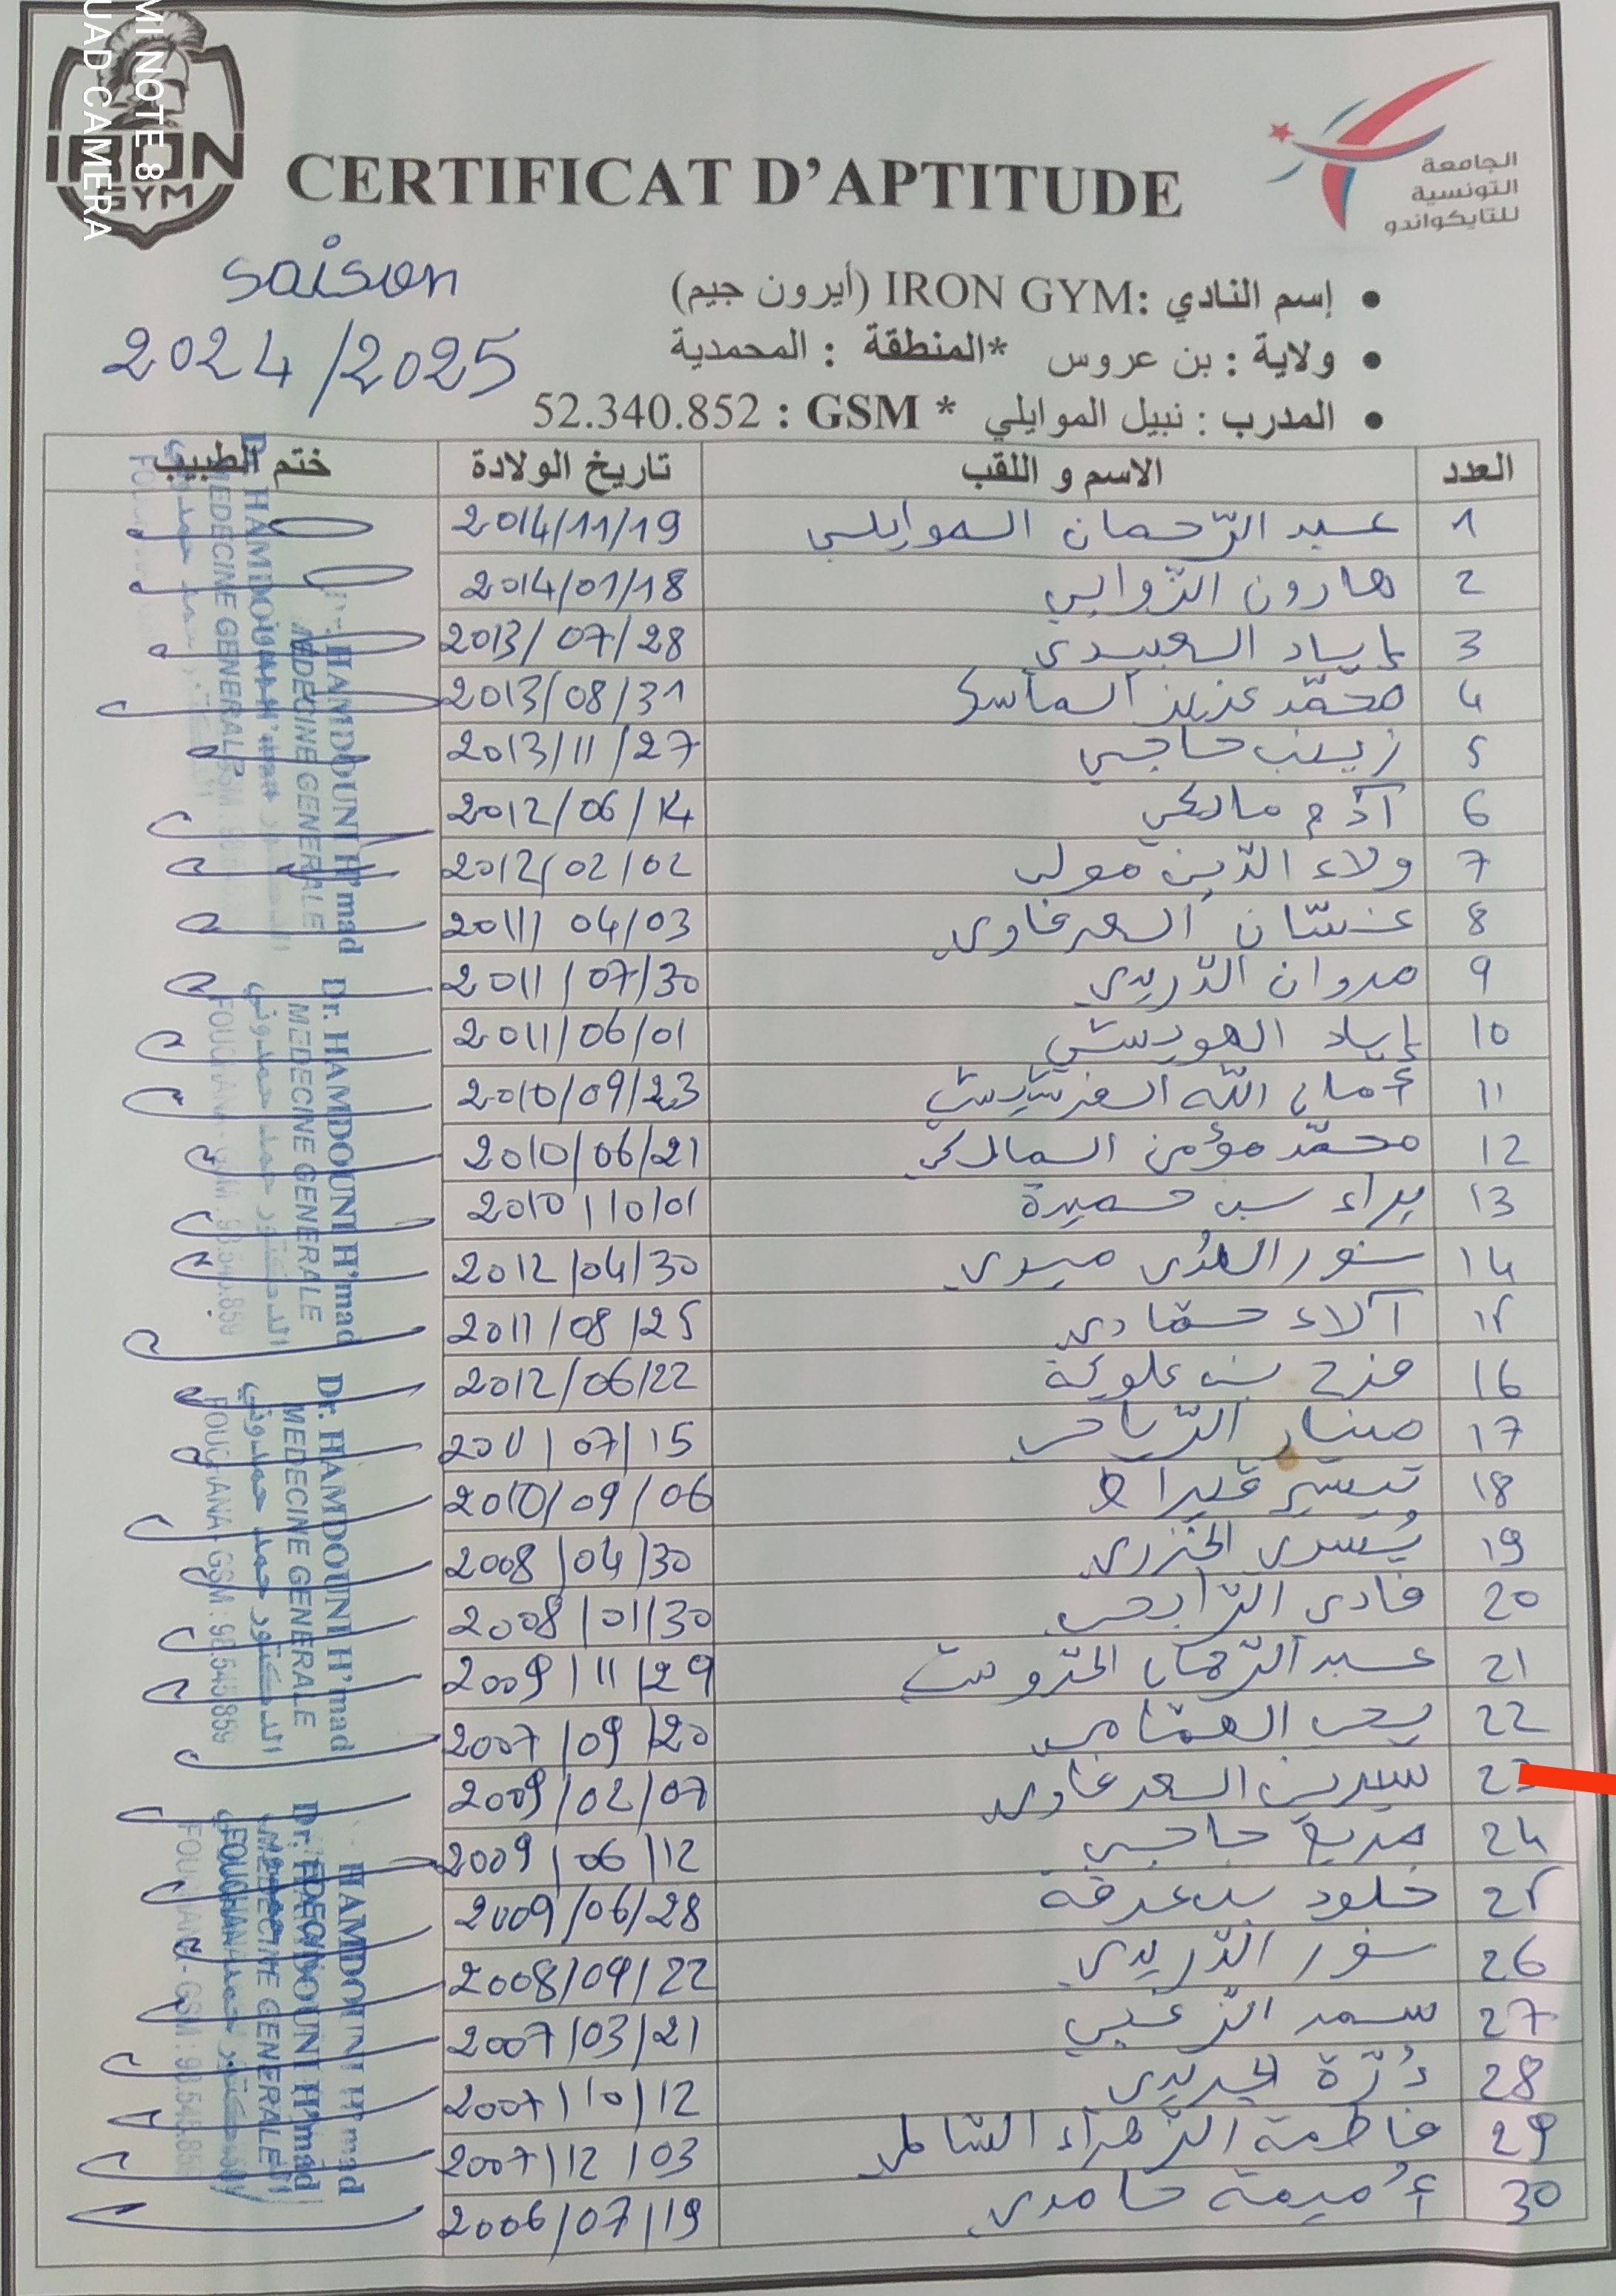 MI NOTE 8
UAD CAMERA
IRON
GYM
CERTIFICAT D'APTITUDE
الجامعة
التونسية
للتايكواندو
saison
2024/2025
• إسم النادي :IRON GYM (أيرون جيم)
• ولاية : بن عروس *المنطقة : المحمدية
• المدرب : نبيل الموايلي * GSM : 52.340.852
العدد الاسم و اللقب تاريخ الولادة ختم الطبيب
1 عبد الرّحمان الموايلي 2014/11/19
2 هارون الزوابي 2014/01/18
3 إياد العبيدي 2013/07/28
4 محمّد عزيز الماسي 2013/08/31
5 زينب حاجي 2013/11/27
6 آدم مالكي 2012/06/14
7 ولاء الدّين مولي 2012/02/02
8 غسّان السعرفاوي 2011/04/03
9 مروان الدّريدي 2011/07/30
10 إياد الهويشي 2011/06/01
11 أمان الله الفرشيشي 2010/09/23
12 محمّد مؤمن المالكي 2010/06/21
13 براء بن حميدة 2010/10/01
14 نور الهُدى ميري 2012/04/30
15 آلاء حمّادي 2011/08/25
16 فرح بن علوية 2012/06/22
17 منار الرّياحي 2011/07/15
18 تيسير قيراط 2010/09/06
19 يُسرى الخزري 2008/04/30
20 فادي الرّابحي 2008/01/30
21 عبد الرّحمان الخرّوبي 2009/11/29
22 يحي العمّامي 2007/09/20
23 سيرين السعرفاوي 2009/02/07
24 مريم حاجي 2009/06/12
25 خلود بن عرفة 2009/06/28
26 نور الدّريدي 2008/09/22
27 سمر الزّغبي 2007/03/21
28 دُرّة الجريدي 2007/10/12
29 فاطمة الزّهراء الشاطر 2007/12/03
30 أُميمة حامدي 2006/07/19
Dr. HAMDOUNI H'mad
MEDECINE GENERALE
Dr. HAMDOUNI H'mad
MEDECINE GENERALE
الدكتور حمد حمدوني
FOUCHANA - GSM : 98.545.859
Dr. HAMDOUNI H'mad
MEDECINE GENERALE
الدكتور حمد حمدوني
FOUCHANA - GSM : 98.545.859
Dr. HAMDOUNI H'mad
MEDECINE GENERALE
FOUCHANA - GSM : 98.545.859